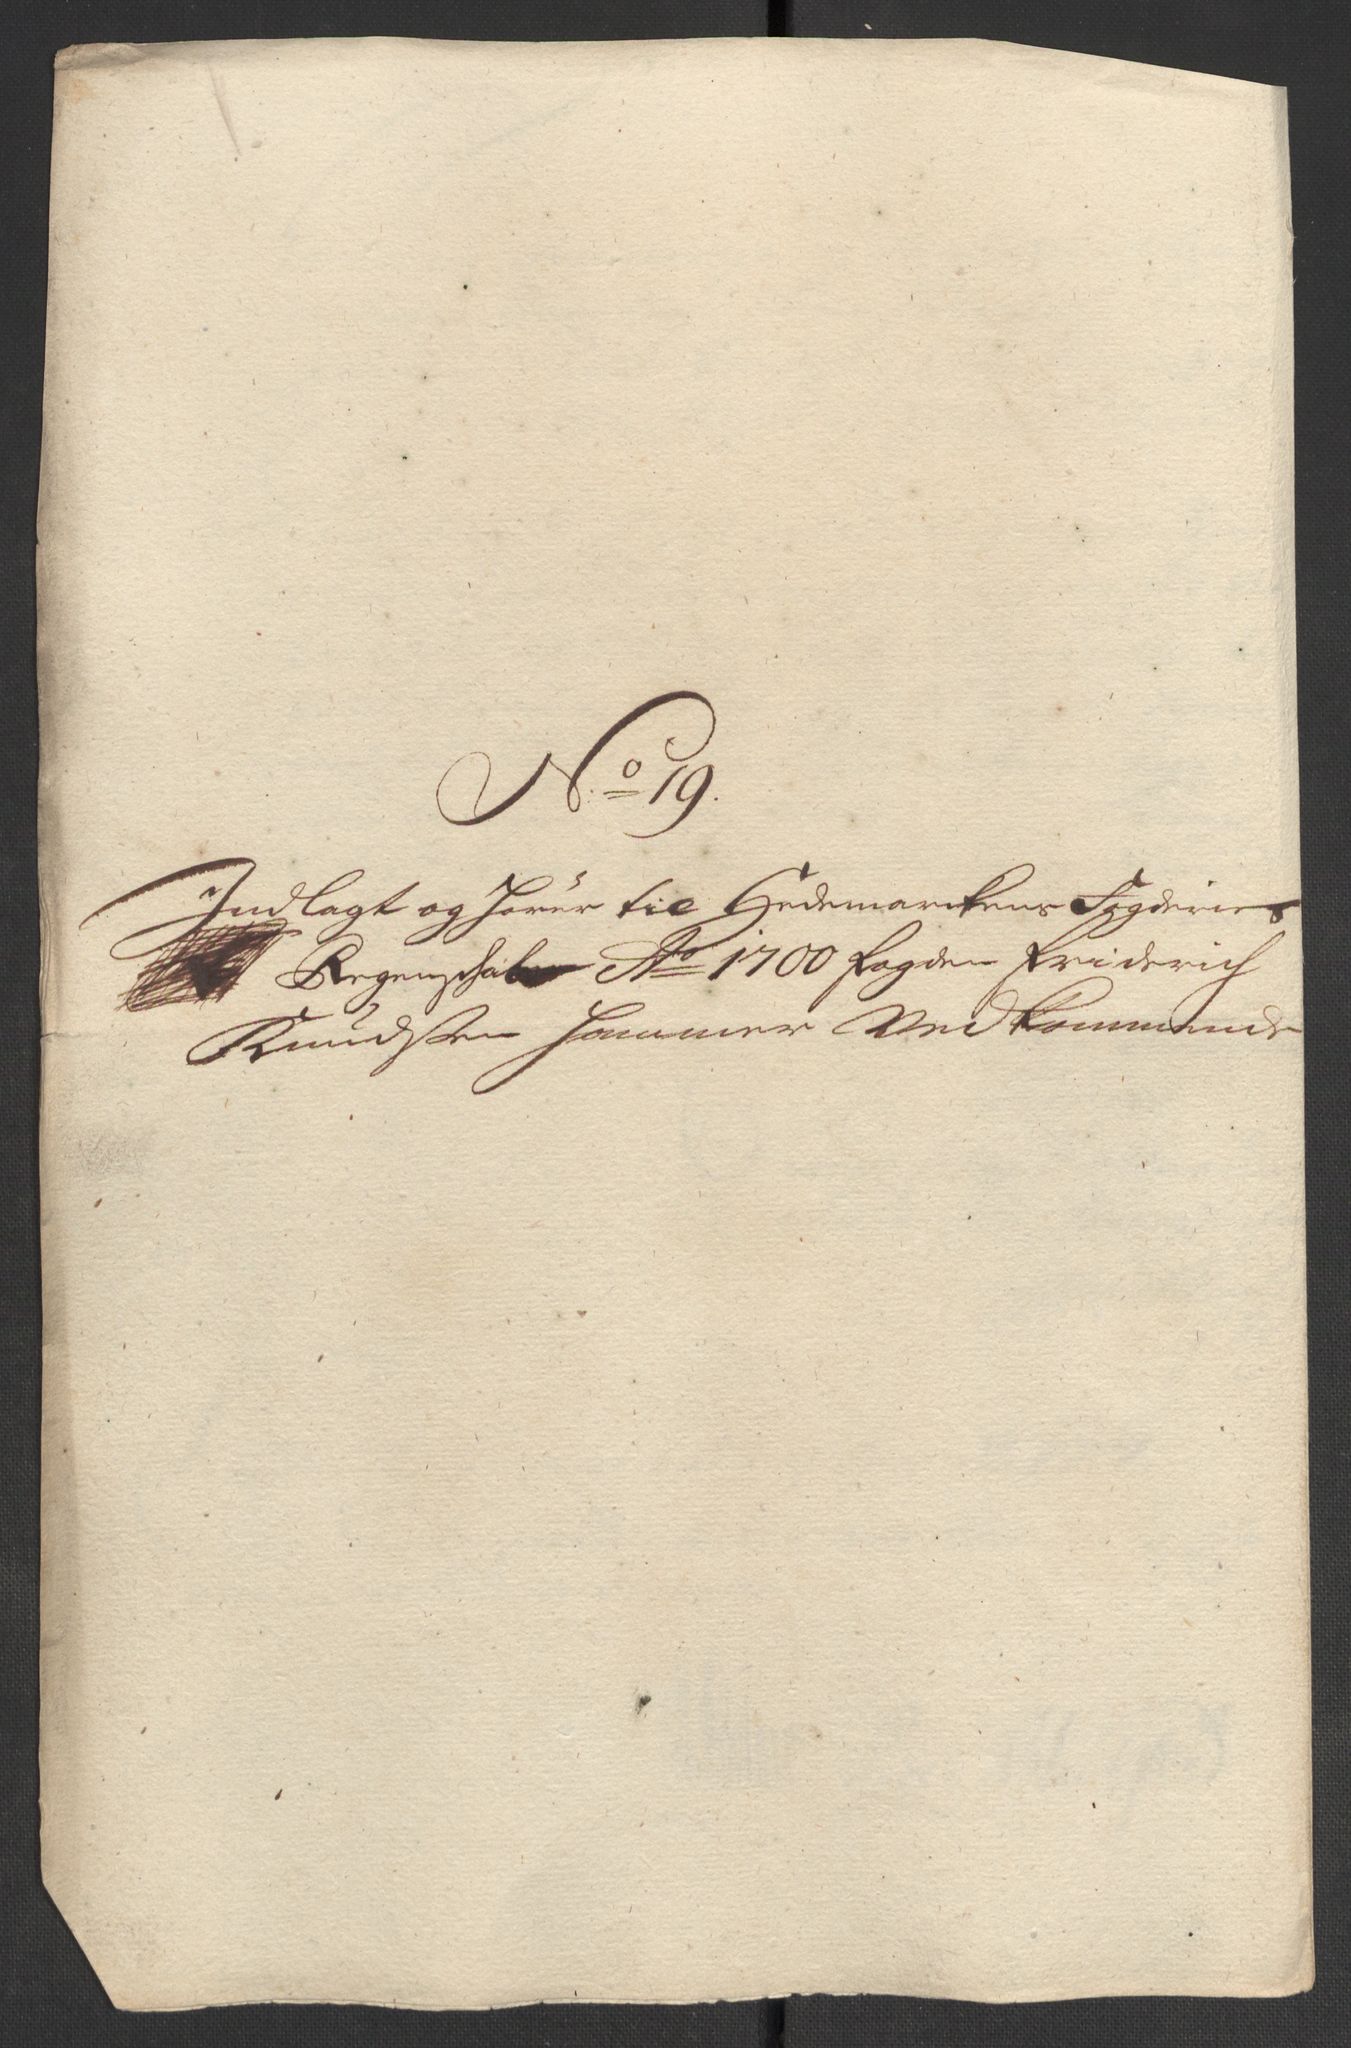 No 19.
Indlagt og hører til Hedemarckens Fogderies
Regenschab Ao 1700 fogden Friderich
Knudsen hammer Vedkommende